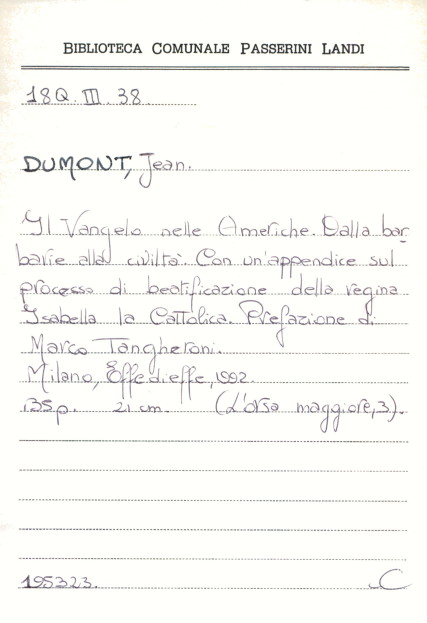 BIBLIOTECA COMUNALE PASSERINI LANDI
18Q. III. 38.
DUMONT, Jean.
Il Vangelo nelle Americhe. Dalla bar-
barie alla civiltà. Con un'appendice sul
processo di beatificazione della regina
Isabella la Cattolica. Prefazione di
Marco Tangheroni.
Milano, Effedieffe, 1992.
135p. 21 cm. (L'orsa maggiore, 3).
195323. C